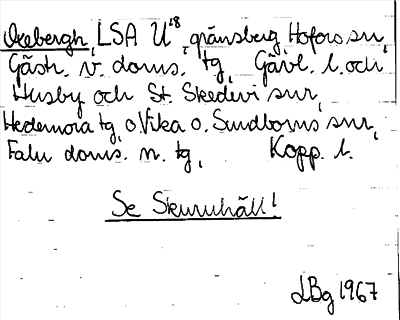 Oxebergh, LSA U¹⁸, gränsberg, Hofors sn,
Gästr. v. doms. tg, Gävl. l. och
Husby och St. Skedevi snr,
Hedemora tg, o. Vika o. Sundborns snr,
Falu doms. n. tg, Kopp. l.
Se Skuruhäll!
LBg 1967